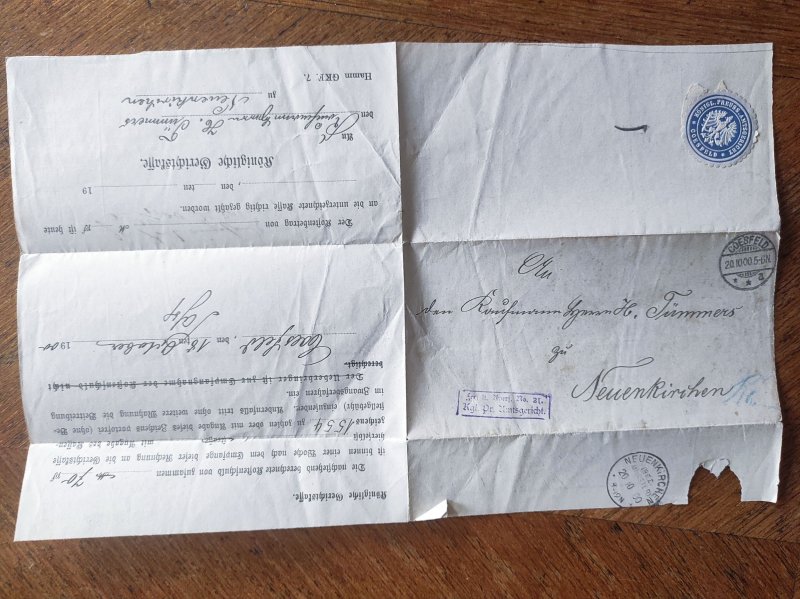 Königliche Gerichtskasse.
Die nachstehend Kostenschuld von zusammen M 70 Pf
ist binnen einer Woche nach dem Empfange dieser Rechnung an die Gerichtskasse
hierselbst mit Angabe des Kassen-
zeichens 1554 zu zahlen oder mit Angabe dieses Zeichens portofrei (ohne Be-
stellgebühr) einzusenden. Andernfalls tritt ohne weitere Mahnung die Beitreibung
im Zwangsverfahren ein.
Der Ueberbringer ist zur Empfangnahme der Kostenschuld nicht
berechtigt.
Coesfeld, den 18 ten October 1900
Der Kostenbetrag von M Pf ist heute
an die unterzeichnete Kasse richtig gezahlt worden.
, den ten 19
Königliche Gerichtskasse.
An
den Kaufmann Herrn H. Tümmers
zu Neuenkirchen
Hamm GKF. 7.
KOENIGL. PREUSS. AMTSGERICHT
COESFELD
COESFELD
20.10.00.5-6N.
a
An
den Kaufmann Herrn H. Tümmers
zu
Neuenkirchen
Frei lt. Avers. No. 21.
Kgl. Pr. Amtsgericht.
NEUENKIRCHEN
20 10